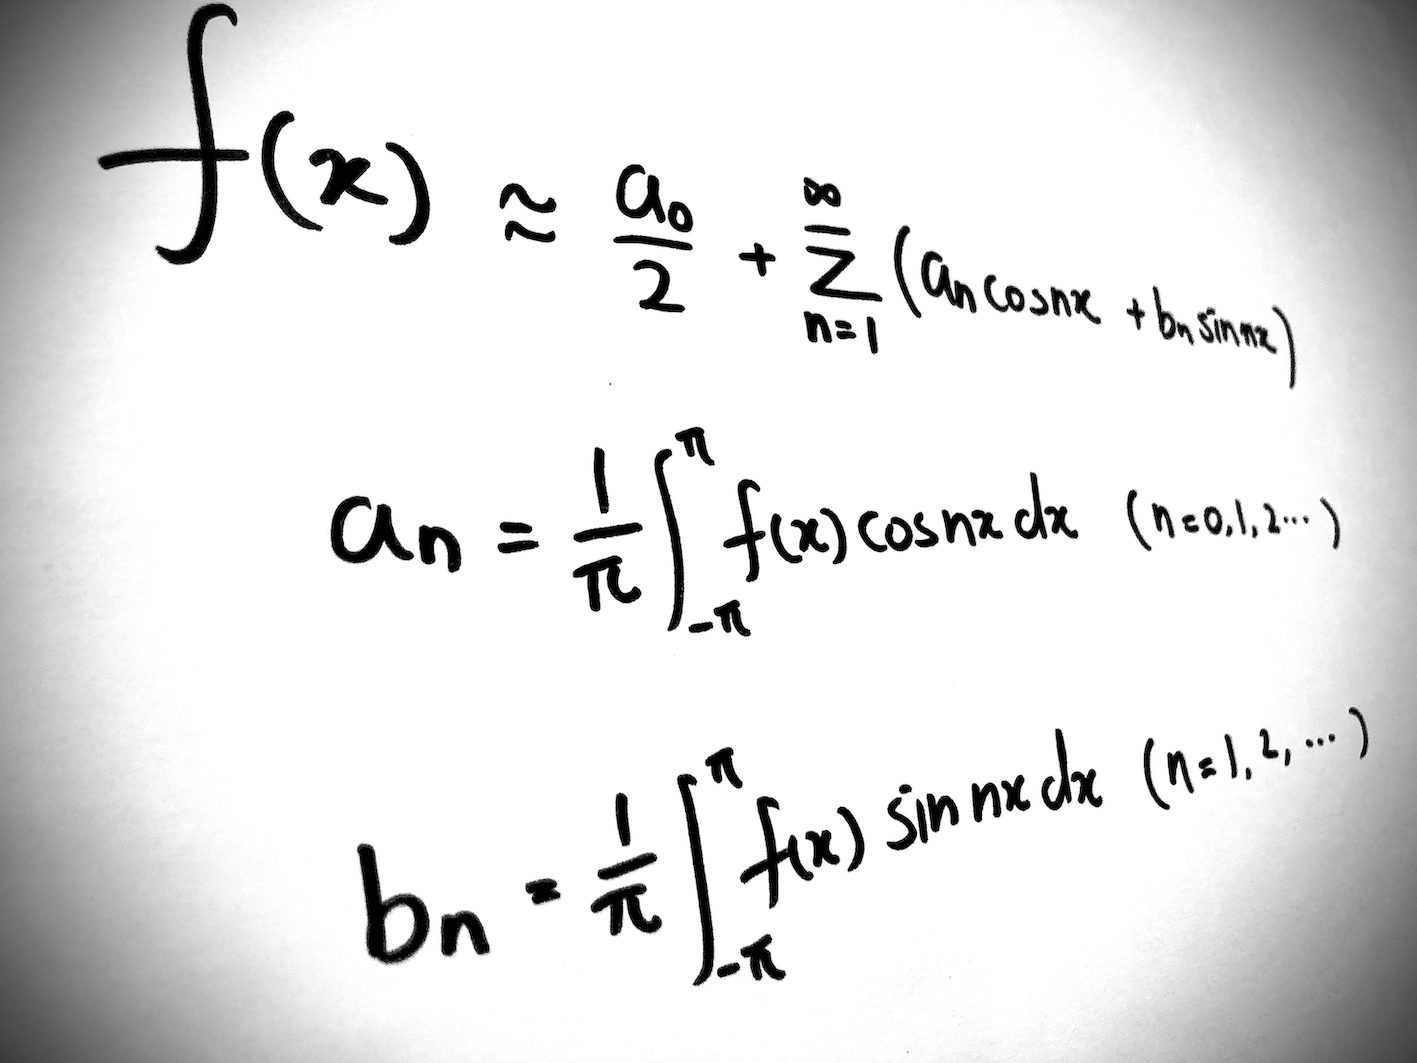 f(x) ≈ a₀/2 + ∑_{n=1}^{∞} (aₙ cos nx + bₙ sin nx)
aₙ = 1/π ∫_{-π}^{π} f(x) cos nx dx (n=0,1,2···)
bₙ = 1/π ∫_{-π}^{π} f(x) sin nx dx (n=1,2,···)